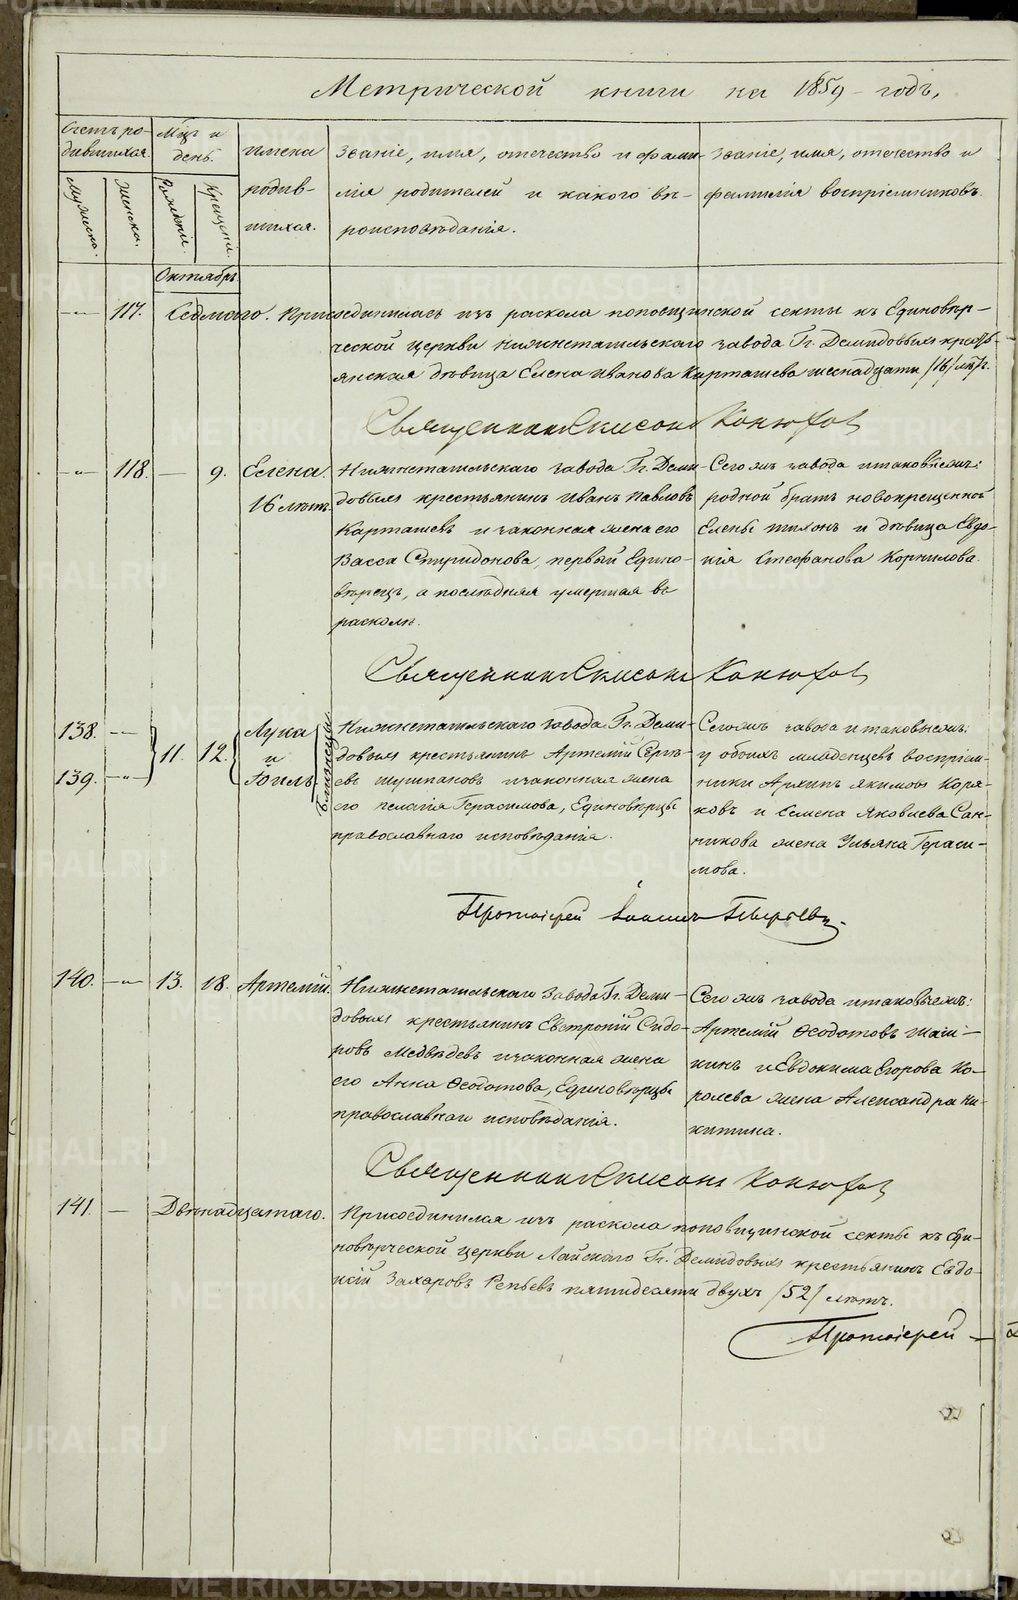 Метрической книги на 1859 годъ,
Счетъ ро-
дившихся.
Мужеска.
Женска.
Мцъ и
день.
Рожденія.
Крещенія.
имена
родив-
шихся.
Званіе, имя, отечество и фами-
лія родителей и какого вѣ-
роисповѣданія.
Званіе, имя, отечество и
фамилія воспріемниковъ.
Октябрь
117. Седмаго. Присоединилась изъ раскола поповщинской секты къ Единовѣр-
ческой церкви Нижнетагильскаго завода Гг. Демидовыхъ кресть-
янская дѣвица Елена Иванова Карташева шеснадцати /16/ лѣтъ.
Священникъ Конюхов
118. — 9. Елена.
16 лѣтъ.
Нижнетагильскаго завода Гг. Деми-
довыхъ крестьянинъ Иванъ Павловъ
Карташевъ и законная жена его
Васса Спиридонова, первый Едино-
вѣрецъ, а послѣдняя умершая въ
расколѣ.
Сегожъ завода итаковыежъ:
родной братъ новокрещенной
Елены Тихонъ и дѣвица Евдо-
кія Стефанова Корнилова.
Священникъ Конюхов
138. —
139. —
11. 12.
Лука
и
Іоиль
близнецы
Нижнетагильскаго завода Гг. Деми-
довыхъ крестьянинъ Артемій Сергѣ-
евъ Шушпановъ изаконная жена
его Пелагія Герасимова, Единовѣрцы
православнаго исповѣданія.
Сегожъ завода итаковыежъ:
у обоихъ младенцевъ воспріем-
ники Архипъ Якимовъ Коря-
ковъ и Семена Яковлева Сан-
никова жена Ульяна Гераси-
мова.
Протоіерей Іоаннъ
140. — 13. 18. Артемій.
Нижнетагильскаго завода Гг. Деми-
довыхъ крестьянинъ Евтропій Сидо-
ровъ Медвѣдевъ изаконная жена
его Анна Ѳеодотова, Единовѣрцы
православнаго исповѣданія.
Сегожъ завода итаковыежъ:
Артемій Ѳеодотовъ Маш-
кинъ и Евдокима Егорова Ко-
ролева жена Александра Ни-
китина.
Священникъ Конюхов
141. — Двѣнадцатаго.
Присоединился изъ раскола поповщинской секты къ Еди-
новѣрческой церкви Лайскаго Гг. Демидовыхъ крестьянинъ Евдо-
кій Захаровъ Репьевъ пятидесяти двухъ /52/ лѣтъ.
Протоіерей
METRIKI.GASO-URAL.RU